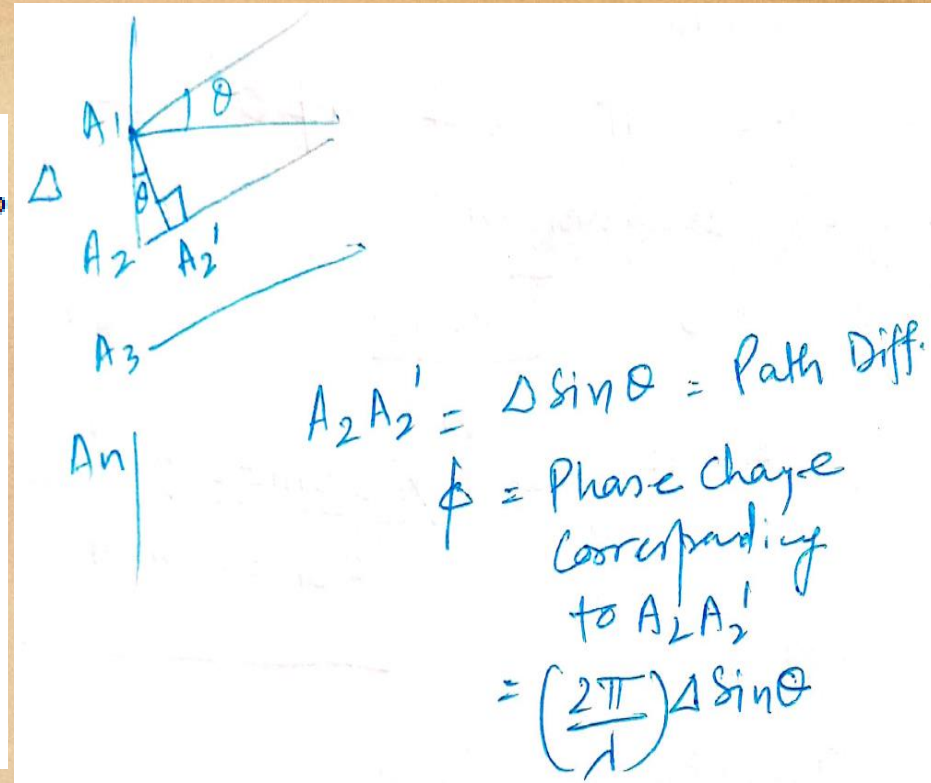 θ
A1
Δ
θ
A2 A2'
A3
An
A2A2' = Δ Sinθ = Path Diff.
φ = Phase Change
Corresponding
to A2A2'
= (2π/λ) Δ Sinθ